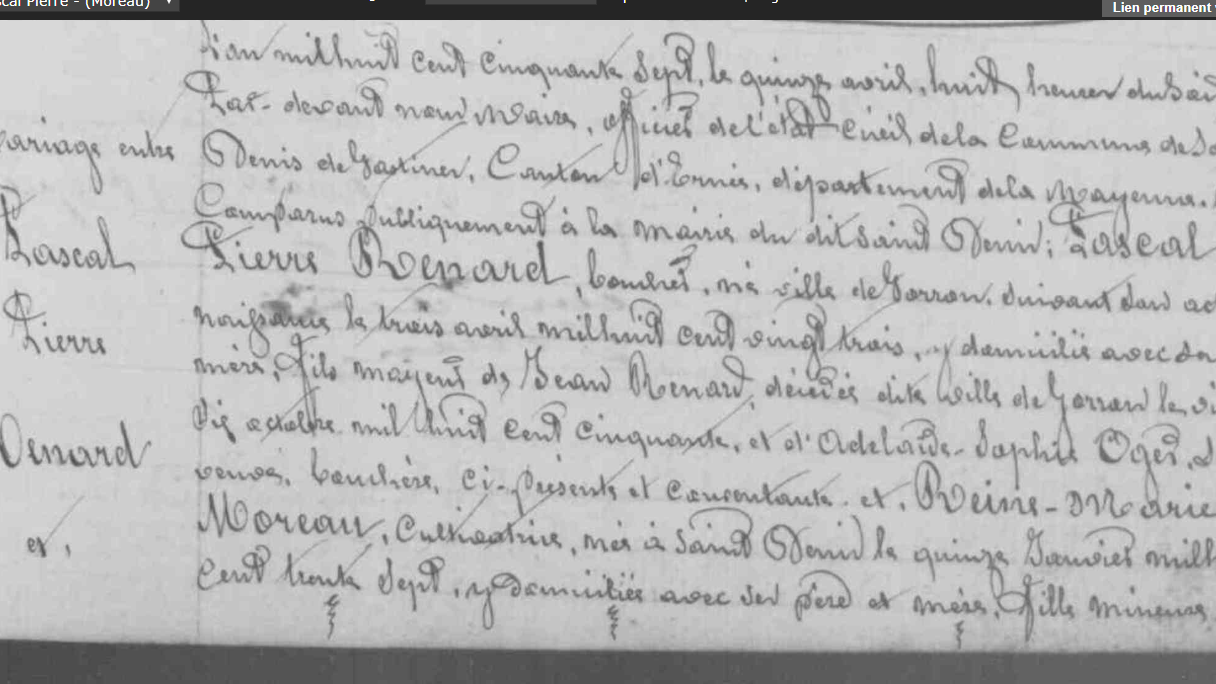 scal Pierre - (Moreau)
Lien permanent
L'an mil huit cent cinquante sept, le quinze avril, huit heures du soi
Par-devant nous Maire, officier de l'état Civil de la Commune de Sa
Mariage entre
Denis de Gastines, Canton d'Ernée, département de la Mayenne.
Comparus publiquement à la mairie du dit Saint Denis; Pascal
Pascal
Pierre Renard, boucher, né ville de Gorron, suivant son ac
naissance le trois avril mil huit cent vingt trois, y domicilié avec sa
Pierre
mère, fils majeur de Jean Renard, décédé dite ville de Gorron le vi
Dix octobre mil huit cent cinquante, et d'Adelaïde-Sophie Oger, s
Renard
veuve, bouchère, ci-présente et consentante. et, Reine-Marie
Moreau, Cultivatrice, née à Saint Denis le quinze Janvier mil h
et,
Cent trente sept, y domiciliée avec ses père et mère, fille mineure